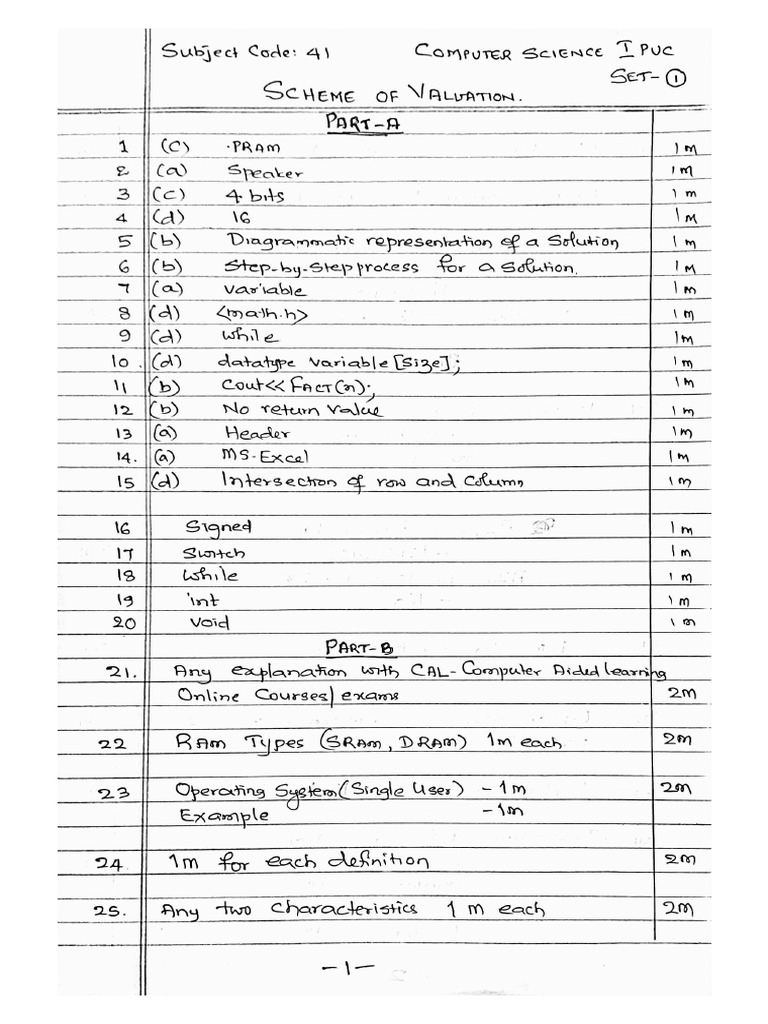 Subject Code: 41 COMPUTER SCIENCE I PUC
SET-①
SCHEME OF VALUATION.
PART-A
1 (c) PRAM 1m
2 (a) Speaker 1m
3 (c) 4 bits 1m
4 (d) 16 1m
5 (b) Diagrammatic representation of a Solution 1m
6 (b) Step-by-Step process for a Solution. 1m
7 (a) variable 1m
8 (d) <math.h> 1m
9 (d) while 1m
10. (d) datatype variable [Size]; 1m
11 (b) Cout<< FACT(n); 1m
12 (b) No return value 1m
13 (a) Header 1m
14. (a) MS-Excel 1m
15 (d) Intersection of row and Column 1m
16 Signed 1m
17 Switch 1m
18 while 1m
19 int 1m
20 void 1m
PART-B
21. Any explanation with CAL-Computer Aided learning
Online Courses/exams 2M
22 RAM Types (SRAM, DRAM) 1m each 2M
23 Operating System (Single User) - 1m 2M
Example - 1m
24. 1m for each definition 2M
25. Any two Characteristics 1 m each 2M
-1-